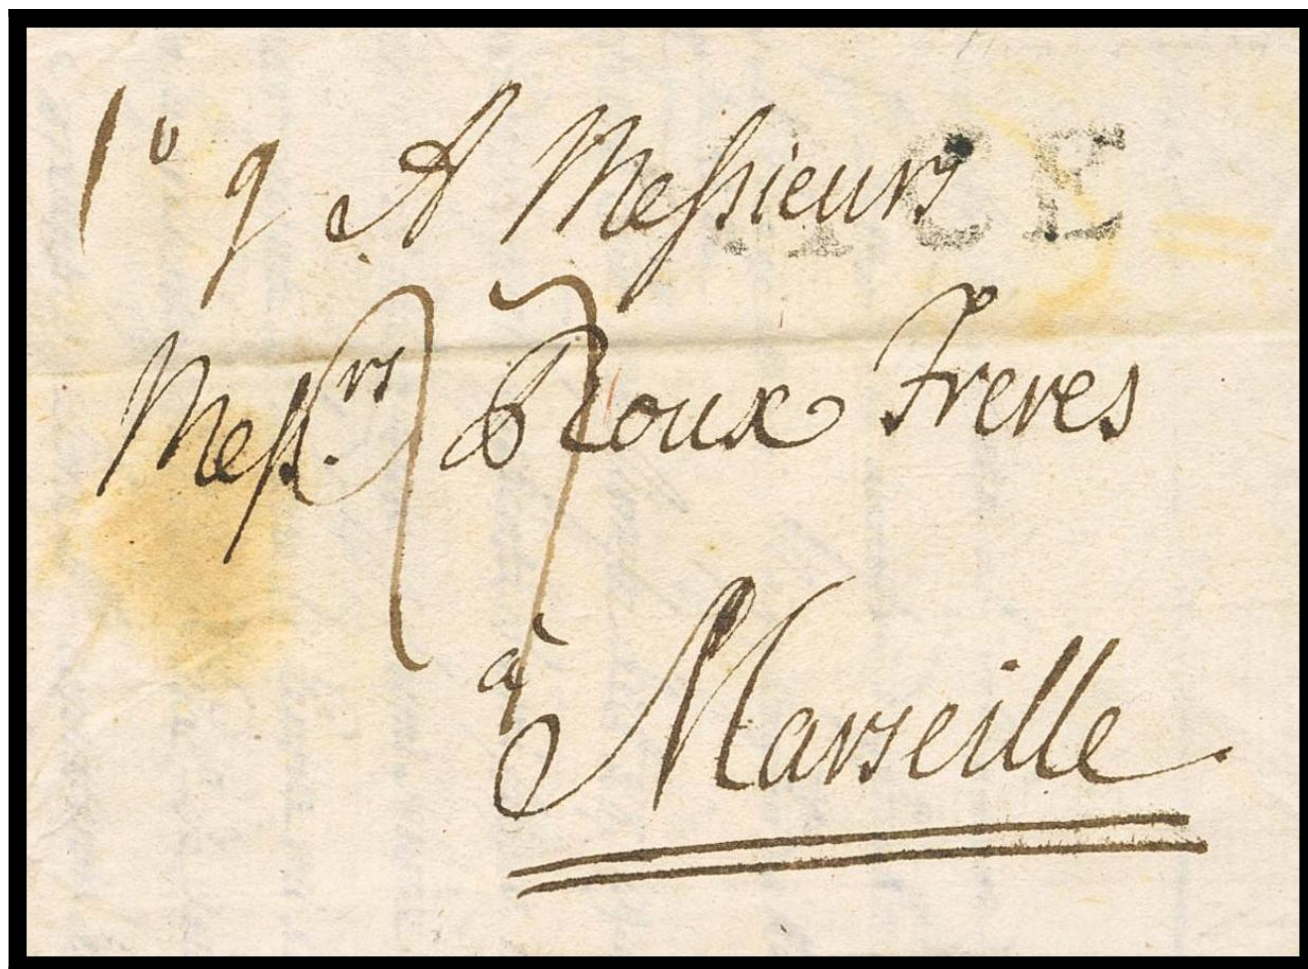 A Messieurs
Messrs Roux Freres
à Marseille